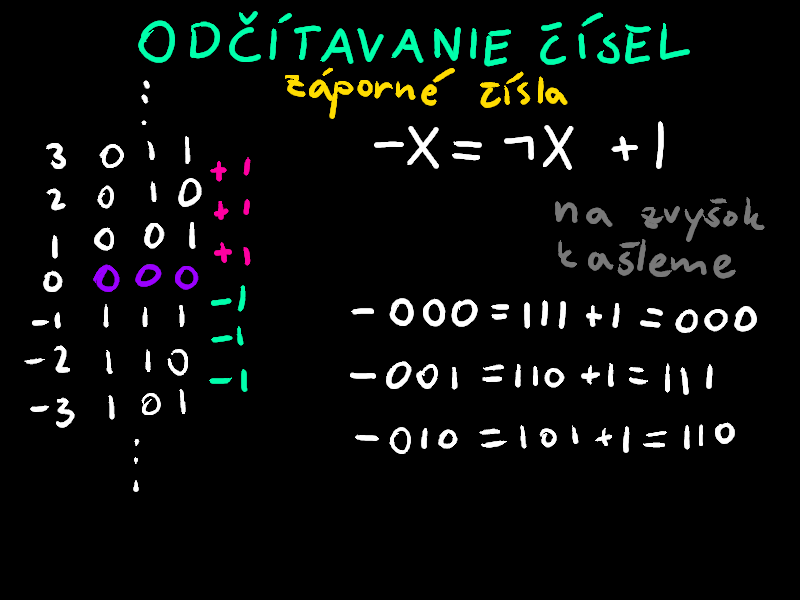 ODČÍTAVANIE ČÍSEL
záporné čísla
3 0 1 1
+1
2 0 1 0
+1
1 0 0 1
+1
0 0 0 0
-1
-1 1 1 1
-1
-2 1 1 0
-1
-3 1 0 1
-X = ¬X + 1
na zvyšok
kašleme
-000 = 111 + 1 = 000
-001 = 110 + 1 = 111
-010 = 101 + 1 = 110